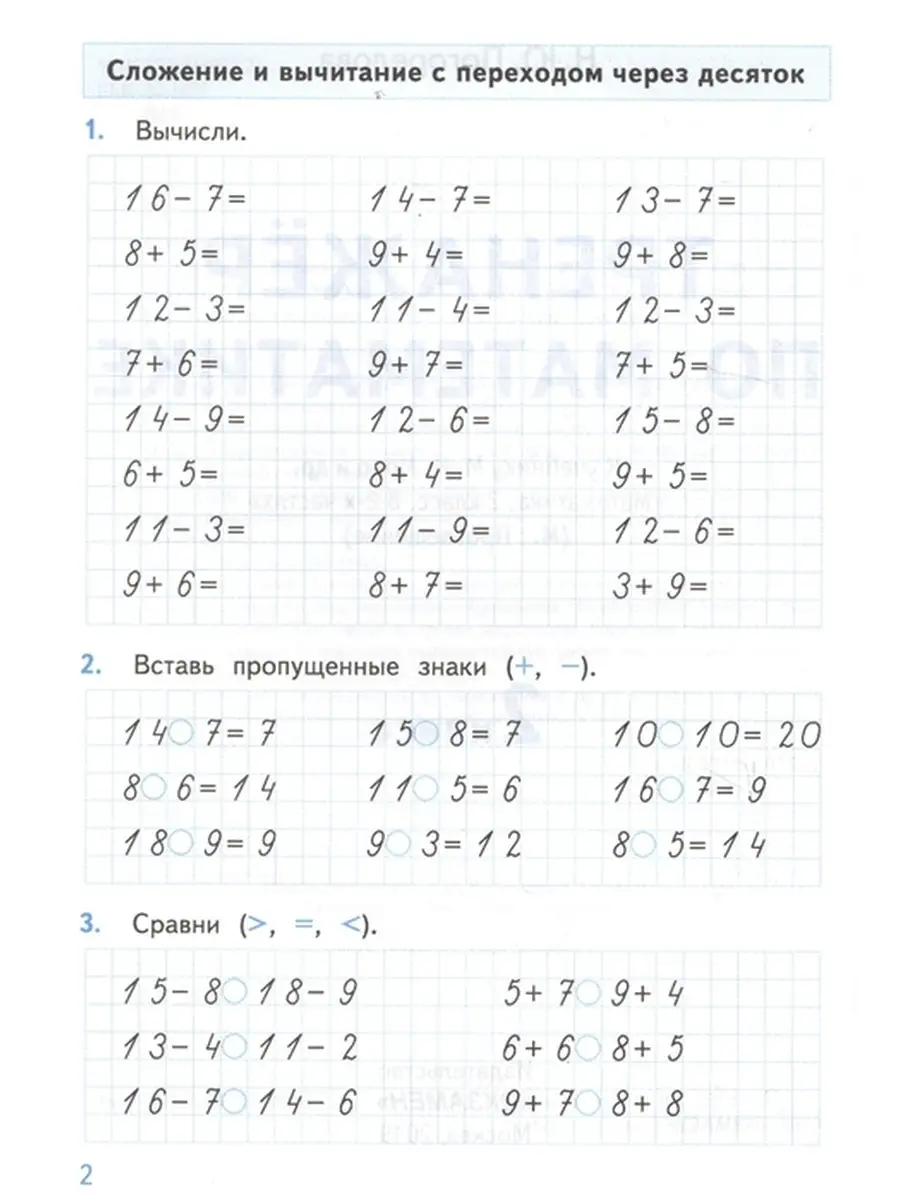 Сложение и вычитание с переходом через десяток
1. Вычисли.
16-7= 14-7= 13-7=
8+5= 9+4= 9+8=
12-3= 11-4= 12-3=
7+6= 9+7= 7+5=
14-9= 12-6= 15-8=
6+5= 8+4= 9+5=
11-3= 11-9= 12-6=
9+6= 8+7= 3+9=
2. Вставь пропущенные знаки (+, −).
14○7=7 15○8=7 10○10=20
8○6=14 11○5=6 16○7=9
18○9=9 9○3=12 8○5=14
3. Сравни (>, =, <).
15-8○18-9 5+7○9+4
13-4○11-2 6+6○8+5
16-7○14-6 9+7○8+8
2